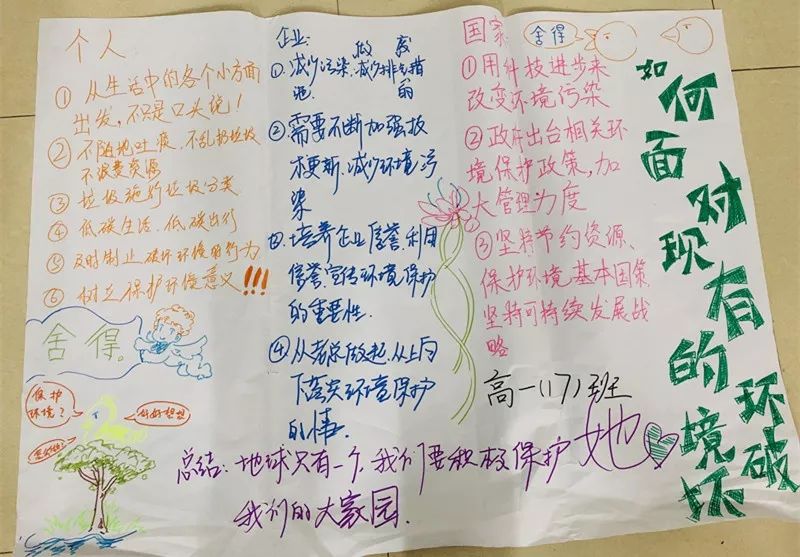 如何面对现有的环境破坏
个人
① 从生活中的各个小方面
出发,不只是口头说!
② 不随地吐痰、不乱扔垃圾
不浪费资源
③ 垃圾施行垃圾分类
④ 低碳生活、低碳出行
⑤ 及时制止破坏环境的行为
⑥ 树立保护环境意义!!!
舍得。
保护
环境?
好好想想
企业:
做 废
①减少污染,减少排气措
施. 的
②需要不断加强技
术更新,减少环境污
染
③.培养企业信誉,利用
信誉,宣传环境保护
的重要性.
④从老总做起,从上向
下落实环境保护
的事.
国家:
舍得
①用科技进步来
改变环境污染
②政府出台相关环
境保护政策,加
大管理力度
③坚持节约资源、
保护环境基本国策
坚持可持续发展战
略
高一(17)班
总结:地球只有一个,我们要积极保护她
我们的大家园.